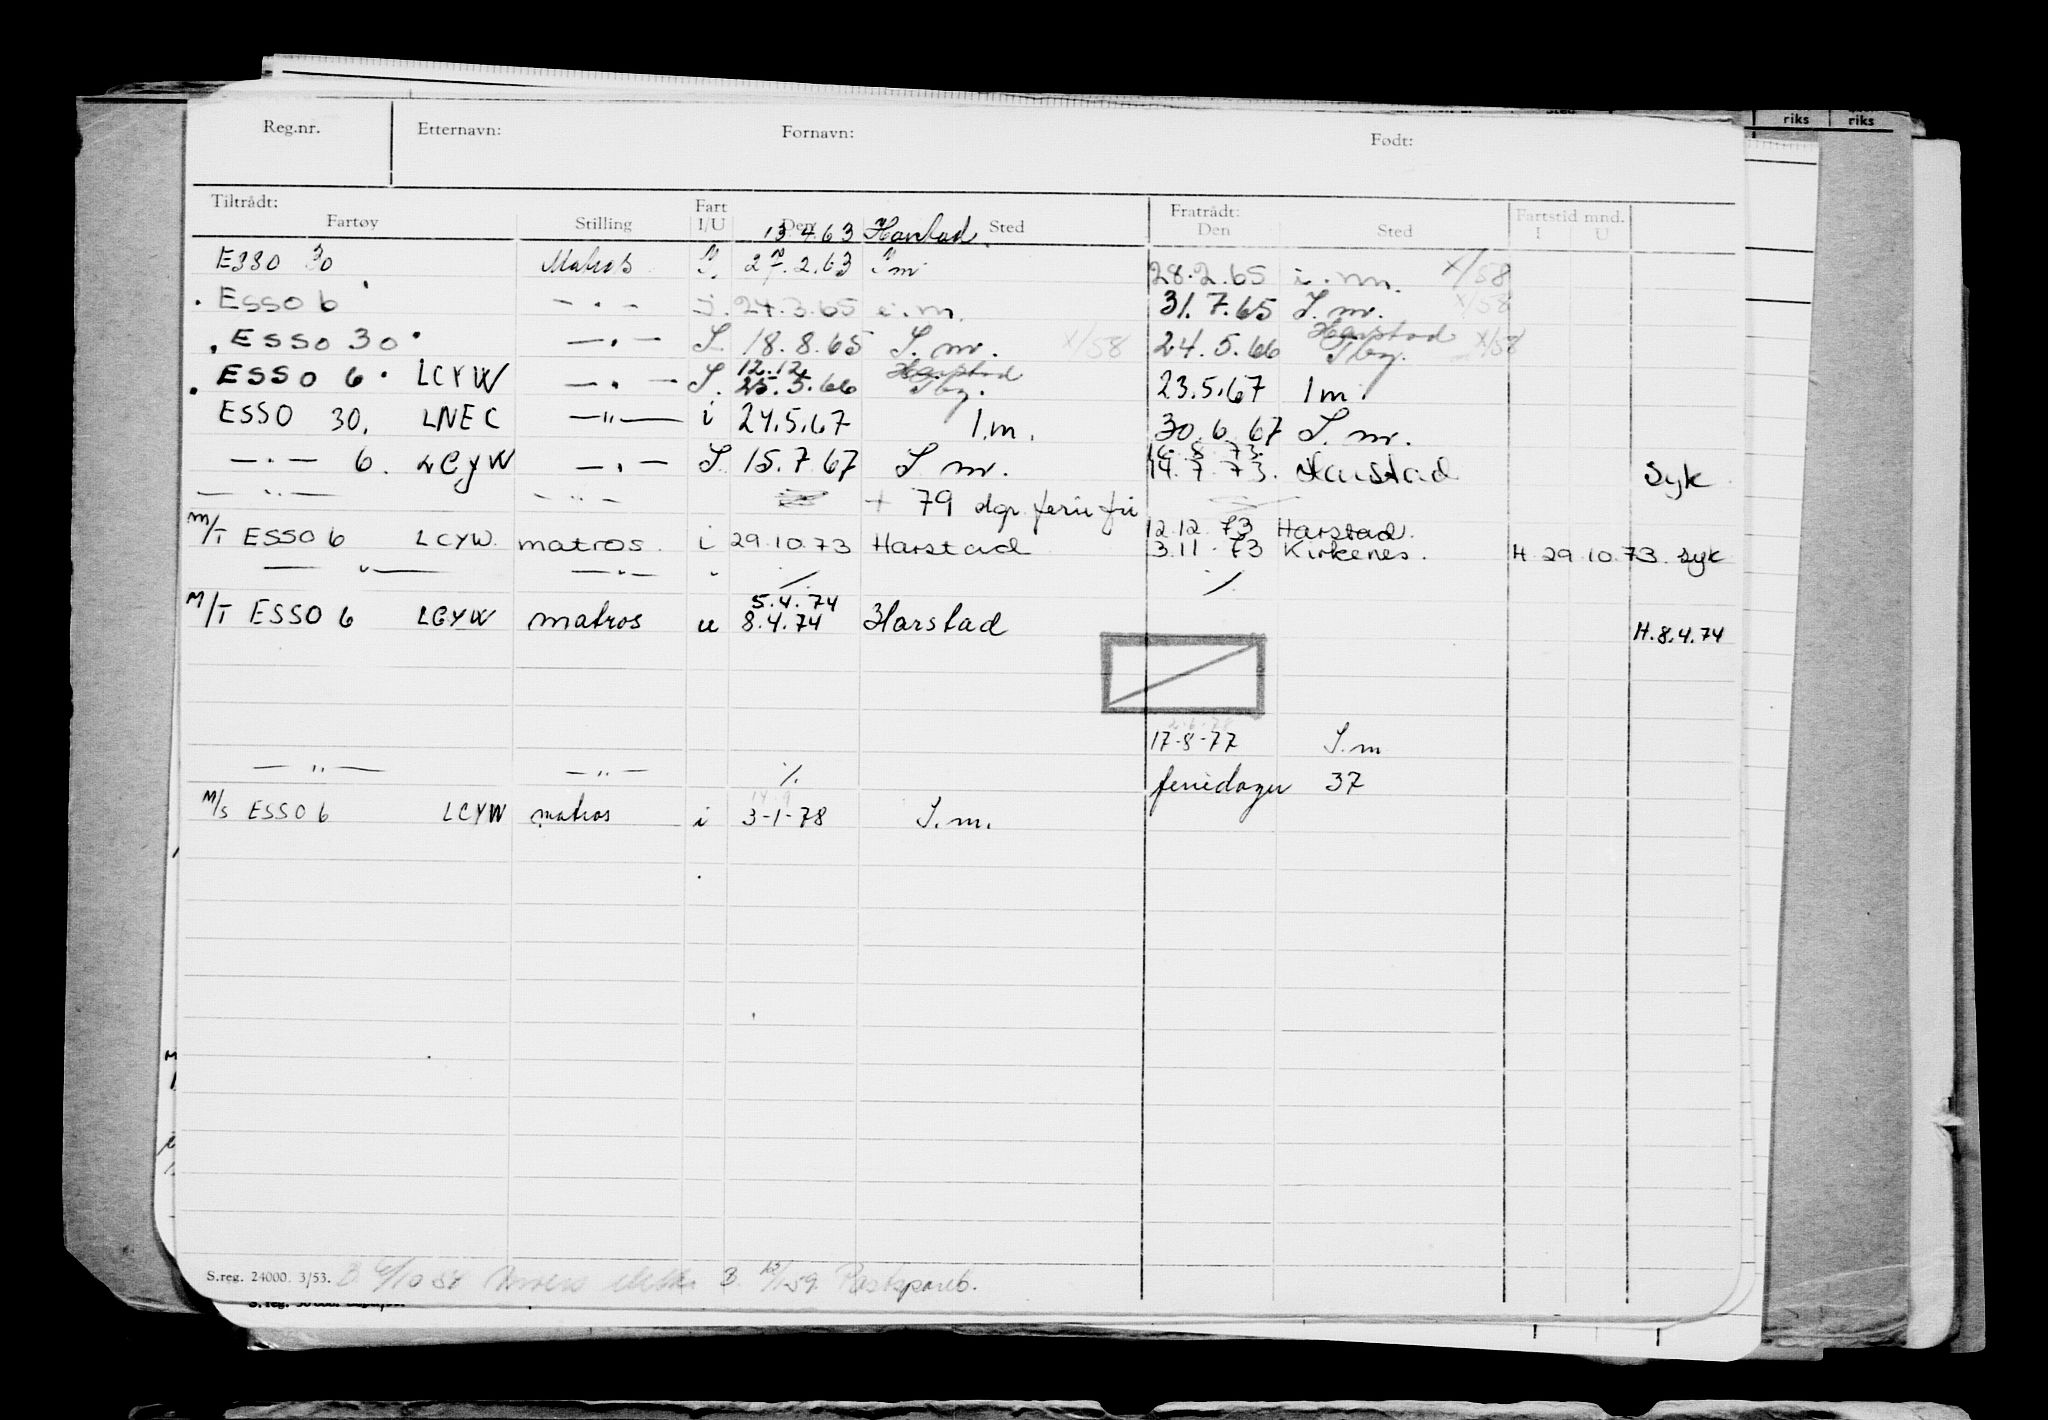 riks riks
Reg.nr. Etternavn: Fornavn: Født:
Tiltrådt: Fartøy Stilling Fart I/U Den Sted Fratrådt: Den Sted Fartstid mnd. I U
13.4.63
ESSO 30 Matros 2.63 I m 28.2.65 i.m. x/58
. ESSO 6 — . — I. 24.3.65 i.m. 31.7.65 I.m. x/58
Harstad
. ESSO 30 . — . — I 18.8.65 I.m. x/58 24.5.66 Tbg. x/58
12.12 Harstad
. ESSO 6 . LCYW — . — I. 25.5.66 Tbg. 23.5.67 I m.
ESSO 30. LNEC — " — i 24.5.67 I.m. 30.6.67 I.m.
16.8.73.
— . — 6. LCYW — . — I 15.7.67 I m. 14.7.73. Harstad Syk
— " — — " — + 79 dgr ferie
12.12.73 Harstad.
M/T ESSO 6 LCYW. matros. i 29.10.73 Harstad 3.11.73 Kirkenes. H 29.10.73. syk
— " — — " — " % %
5.4.74
M/T ESSO 6 LCYW matros u 8.4.74 Harstad H.8.4.74
17-8-77 I.m
— " — — " — % feriedager 37
M/S ESSO 6 LCYW matros i 3-1-78 I.m.
S.reg. 24000. 3/53. B. B. Postspareb.